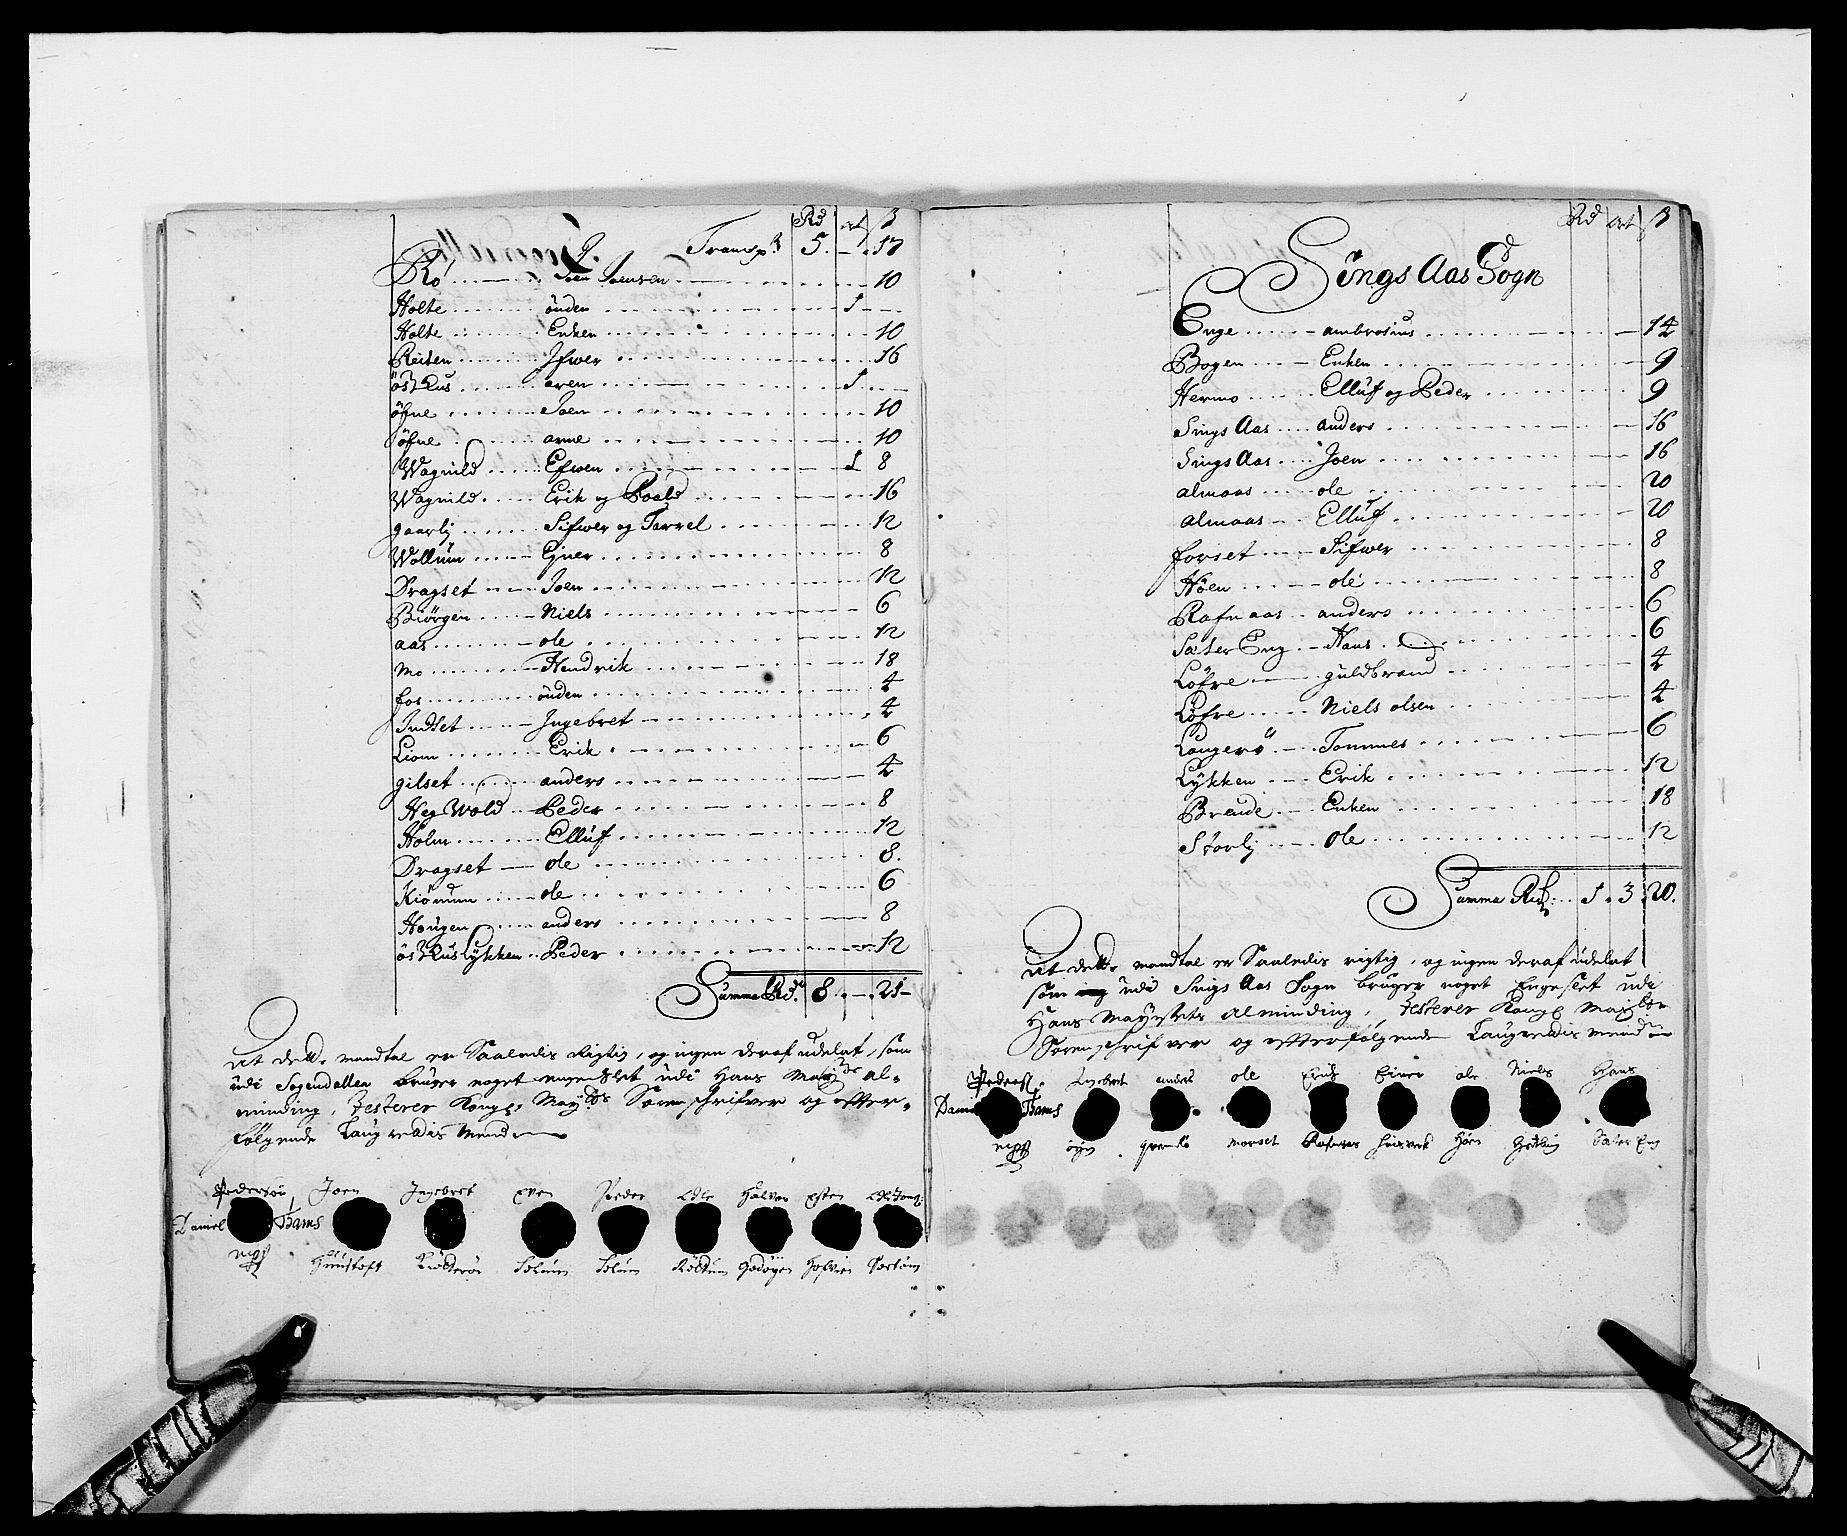 Rd ort ß
Transp: 5 - - 17
Rö Joen Joensen 10
Holte önden 1 -
Holte Enken 10
Reiten Ifwer 16
östhus aren 1 -
öfne Joen 10
öfne arne 10
Wognild Efwen 1 8
Wognild Erik og Roald 16
gaarlj Sifwer og Tarrel 12
Wollum Ejner 8
Dragset Joen 12
Biörgen Niels 6
aas ole 12
Mo Hendrik 18
fos önden 4
Indset Ingebret 4
Liom Erik 6
gilset anders 4
Heg Wold Peder 8
Holm Elluf 12
Dragset ole 8
Kiönum ole 6
Hougen anders 8
östhuslykken Peder 12
Summa Rd. 8 - 21
At dette mandtal er Saaledis Rigtig, og ingen deraf udelat, som
udi Sogendallen bruger noget engeslet udi Hans Maytz al-
minding, Testerer Kongl. Maytz Sorenschrifver og effter-
følgende Laugredis Mend
Pedersøn Joen Ingebret Even Peder Olle Halvor Esten
Daniel Thams
mpp Solum Solum
Rd ort ß
Sings Aas Sogn
Enge ambrosius 14
Bogen Enken 9
Hermo Elluf og Peder 9
Sings Aas anders 16
Sings Aas Joen 16
almaas ole 20
almaas Elluf 20
forset Sifwer 8
Höen ole 8
Rafnaas anders 6
Säter Eng Hans 6
Löfre guldbrand 4
Löfre Niels olsen 4
Langerö Tommes 6
Lykken Erik 12
Brende Enken 18
Störlj ole 12
Summa Rd. 1 - 3 - 20.
At dette mandtal er Saaledis rigtig, og ingen deraf udelat
som udi Sings Aas Sogn bruger noget Engeslet udi
Hans Maystets alminding, Testerer Kongl Maytz
Sorenschrifver og effterfølgende Laugredis Mend
Peders. Ingebret anders ole Erik Einer ole Niels Hans
Daniel Thams
mpp morset Rafnaas Höen Säter Eng